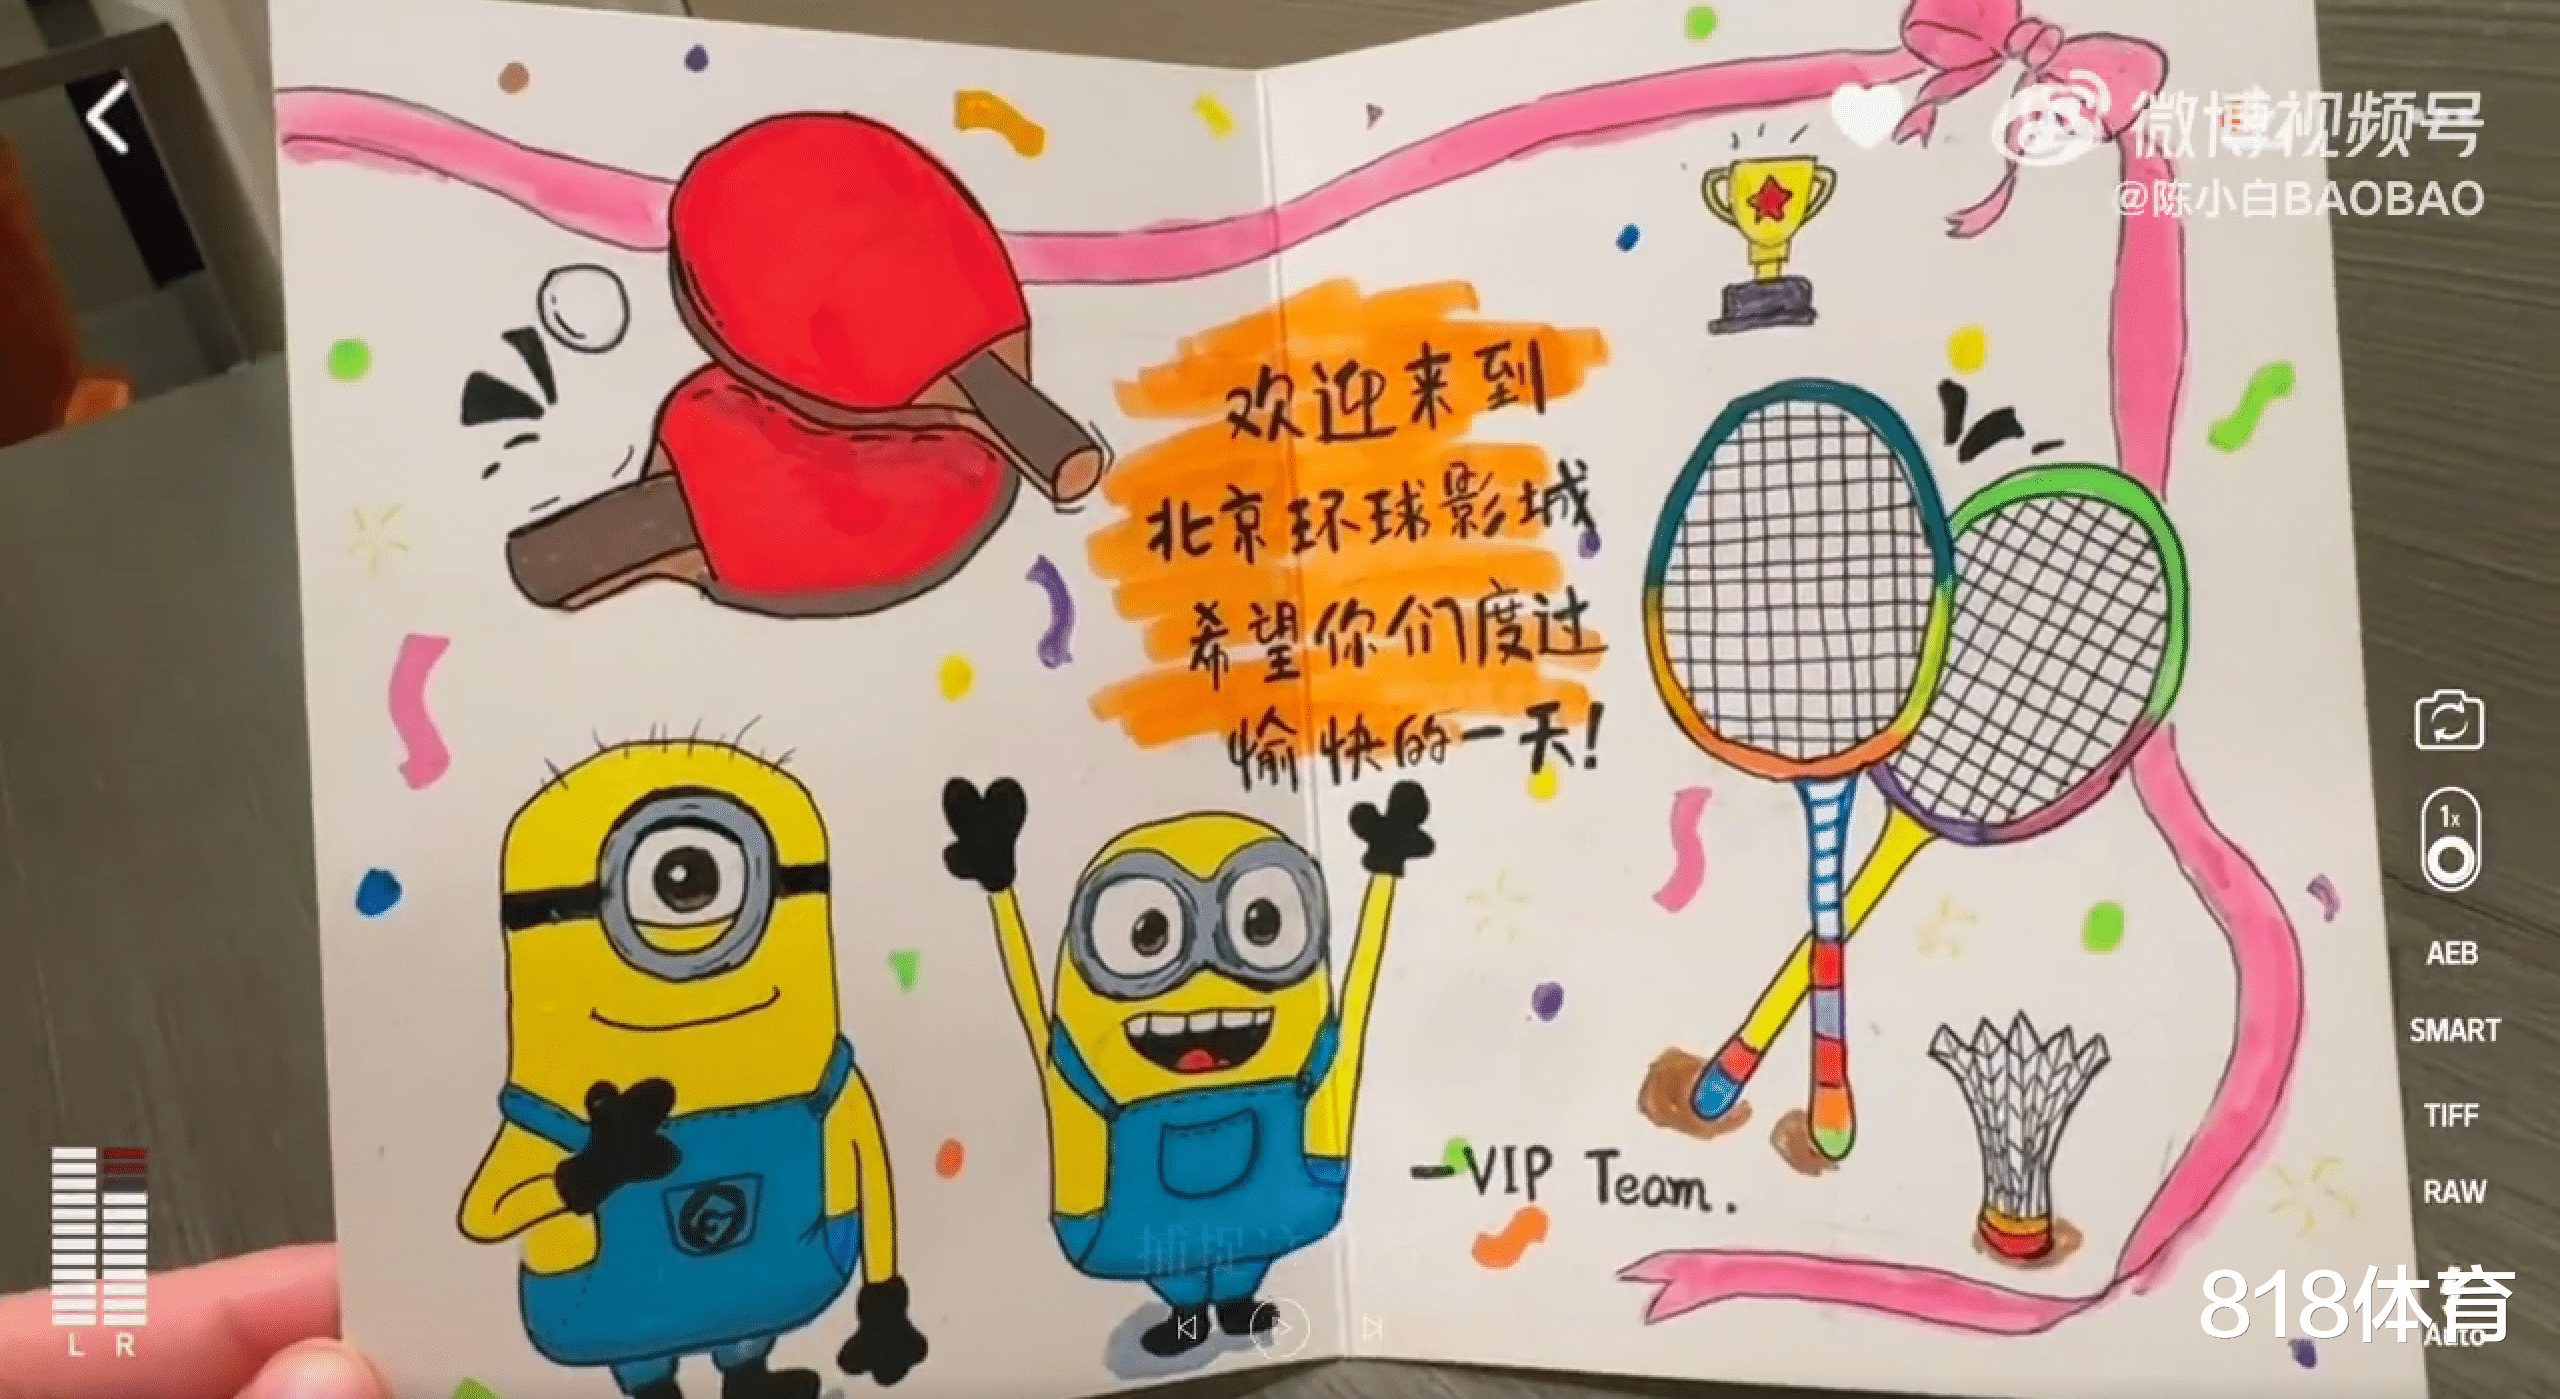 微博视频号
@陈小白BAOBAO
欢迎来到
北京环球影城
希望你们度过
愉快的一天!
1x
AEB
SMART
TIFF
—VIP Team.
RAW
818体育
Auto
L R